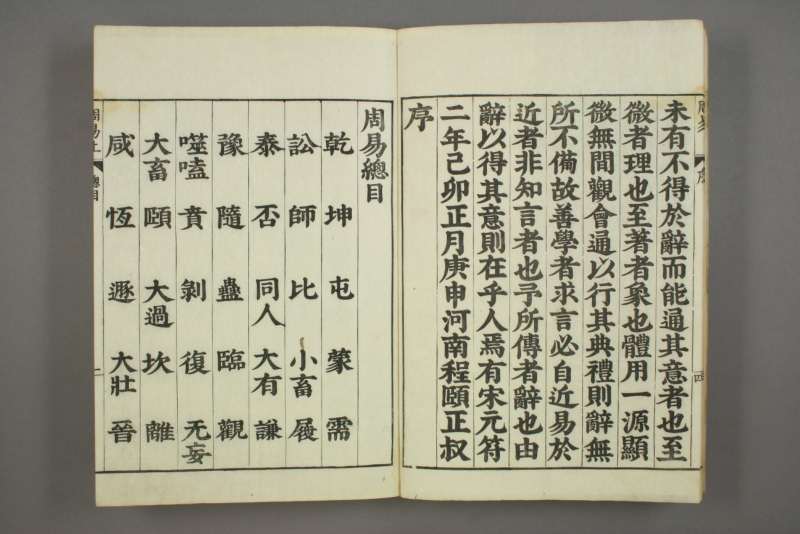 未有不得於辭而能通其意者也至
微者理也至著者象也體用一源顯
微無間觀會通以行其典禮則辭無
所不備故善學者求言必自近易於
近者非知言者也予所傳者辭也由
辭以得其意則在乎人焉有宋元符
二年己卯正月庚申河南程頤正叔
序
周易總目
乾 坤 屯 蒙 需
訟 師 比 小畜 履
泰 否 同人 大有 謙
豫 隨 蠱 臨 觀
噬嗑 賁 剝 復 无妄
大畜 頤 大過 坎 離
咸 恆 遯 大壯 晉
周易上 總目